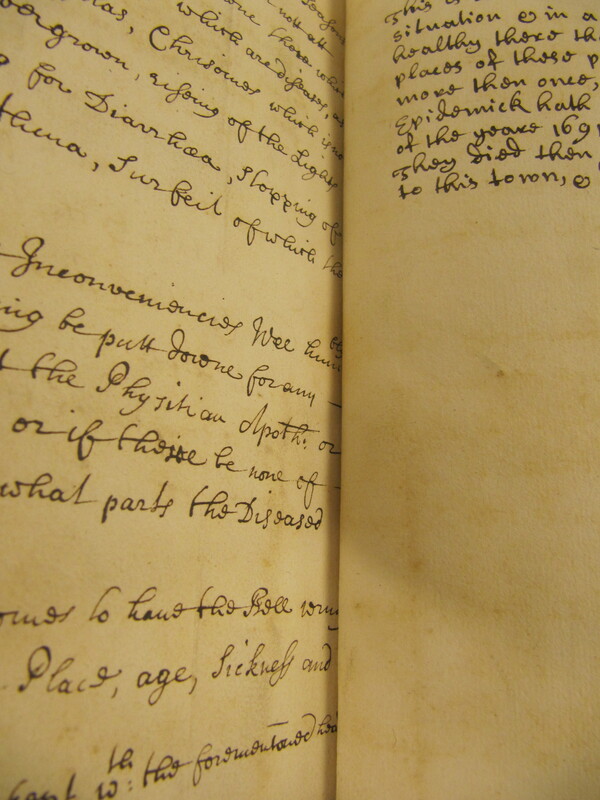 not att
one those which
which are diseases, as
as, Chrisomes which is no
vergrown, rising of the Lights
for Diarrhœa, stopping of
thma, Surfeit of which the
Inconveniencies Wee hum
ing be putt downe for any
the Physitian Apoth: or
or if there be none of
what parts the Diseased
omes to haue the Bell rung
Place, age, Sickness and
kept wth: the forementioned
This is
situation & in a
healthy there th
places of these p
more then once,
Epidemick hath
of the yeare 169
They died then
to this town, &